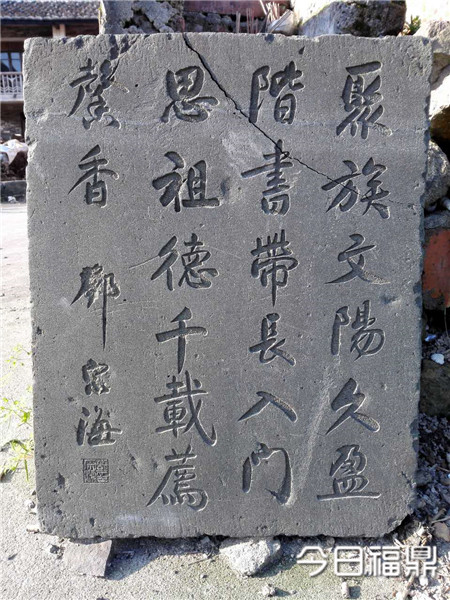 聚族文陽久盈
階書帶長入門
思祖德千載薦
馨香 鄧宗海
今日福鼎